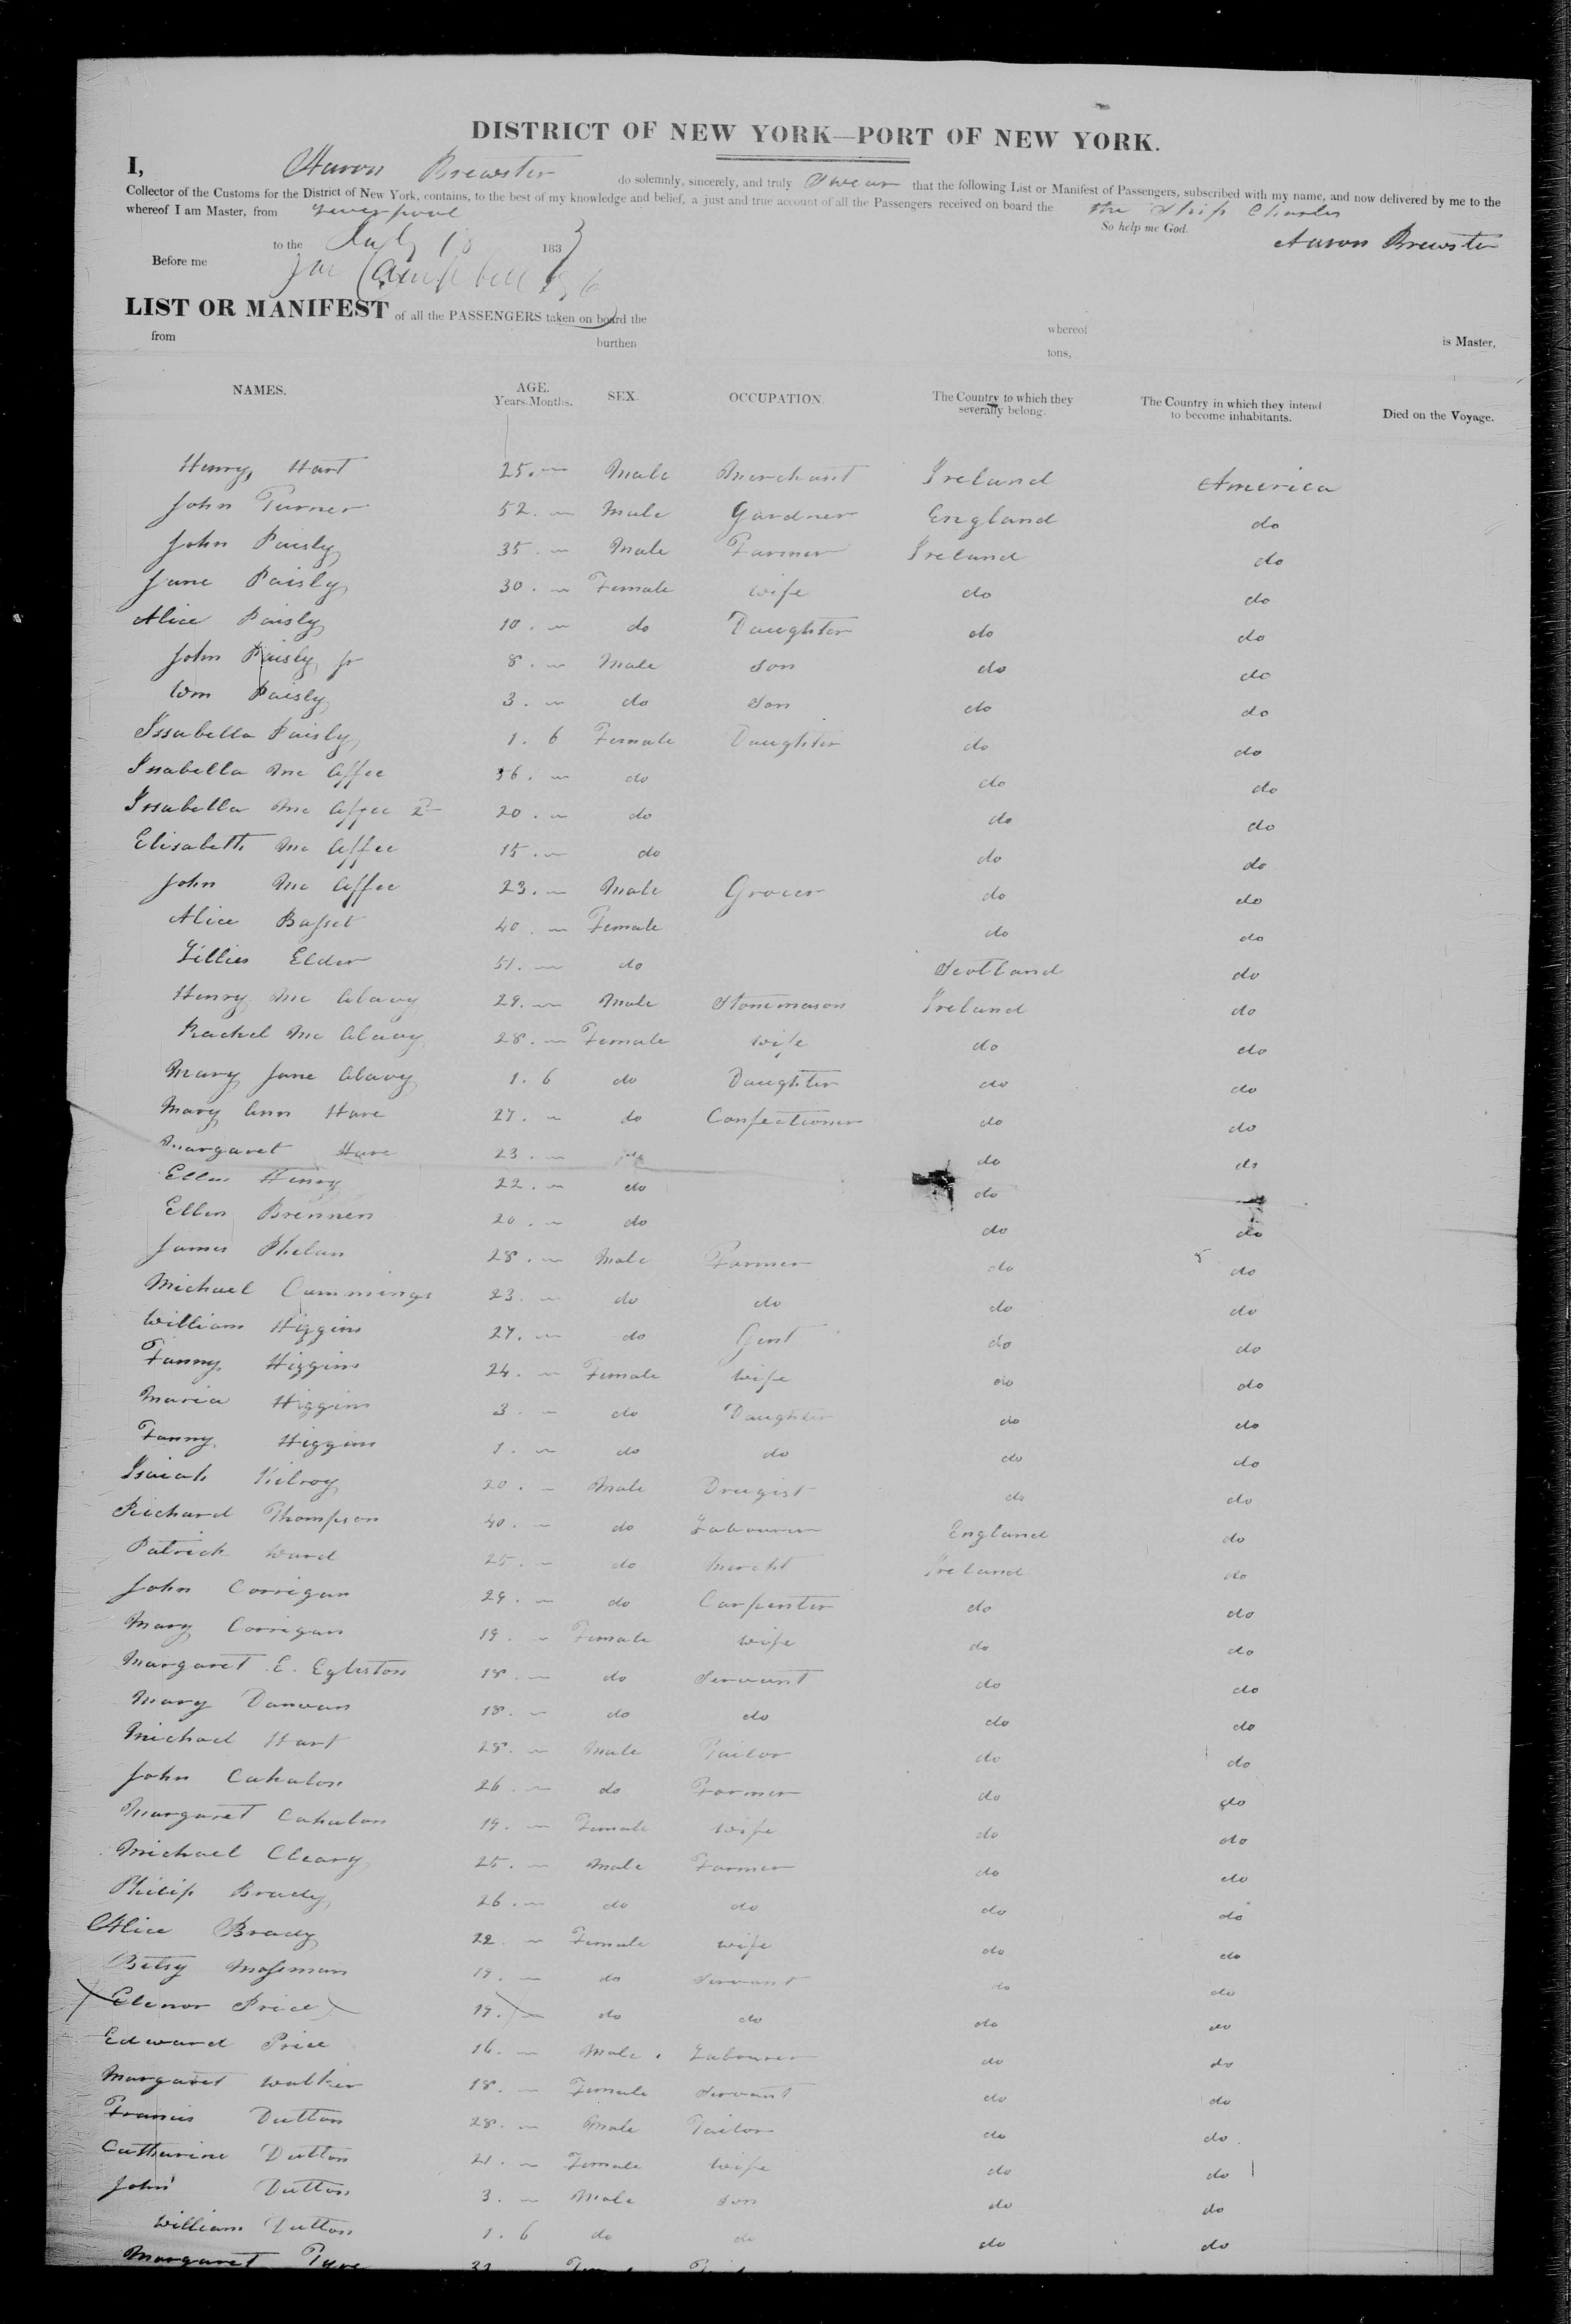 DISTRICT OF NEW YORK—PORT OF NEW YORK.
I, Aaron Brewster do solemnly, sincerely, and truly Swear that the following List or Manifest of Passengers, subscribed with my name, and now delivered by me to the
Collector of the Customs for the District of New York, contains, to the best of my knowledge and belief, a just and true account of all the Passengers received on board the the Ship Charles
whereof I am Master, from Liverpool
So help me God.
to the July 18 1833 Aaron Brewster
Before me Campbell
LIST OR MANIFEST of all the PASSENGERS taken on board the whereof is Master,
from burthen tons,
NAMES. AGE. Years. Months. SEX. OCCUPATION. The Country to which they severally belong. The Country in which they intend to become inhabitants. Died on the Voyage.
Henry Hart 25. " Male Merchant Ireland America
John Turner 52. " Male Gardner England do
John Paisly 35. " Male Farmer Ireland do
Jane Paisly 30. " Female wife do do
Alice Paisly 10. " do Daughter do do
John Paisly Jr 8. " Male Son do do
Wm Paisly 3. " do Son do do
Issabella Paisly 1. 6 Female Daughter do do
Issabella Mc Affee 56. " do do do
Issabella Mc Affee 2d 20. " do do do
Elisabeth Mc Affee 15. " do do do
John Mc Affee 23. " Male Grocer do do
Alice Basset 40. " Female do do
Lillies Elder 51. " do Scotland do
Henry Mc Alavy 29. " Male Stonemason Ireland do
Rachel Mc Alavy 28. " Female wife do do
Mary Jane Alavy 1. 6 do Daughter do do
Mary Ann Hare 27. " do Confectioner do do
Margaret Hare 23. " do do do
Ellen Henry 22. " do do do
Ellen Brennen 20. " do do do
James Phelan 28. " Male Farmer do do
Michael Cummings 23. " do do do do
William Higgins 27. " do Gent do do
Fanny Higgins 24. " Female Wife do do
Maria Higgins 3. " do Daughter do do
Fanny Higgins 1. " do do do do
Isaiah Kilroy 20. " Male Drugist do do
Richard Thompson 40. " do Labourer England do
Patrick Ward 25. " do Mercht Ireland do
John Corrigan 29. " do Carpenter do do
Mary Corrigan 19. " Female wife do do
Margaret E. Egleston 18. " do Servant do do
Mary Danvan 18. " do do do do
Michael Hart 28. " Male Tailor do do
John Cahalan 26. " do Farmer do do
Margaret Cahalan 19. " Female wife do do
Michael Cleary 25. " Male Farmer do do
Philip Brady 26. " do do do do
Alice Brady 22. " Female wife do do
Betsy Mossman 19. " do Servant do do
Elenor Price 19. " do do do do
Edward Price 16. " Male Labourer do do
Margaret Walker 18. " Female Servant do do
Francis Dutton 28. " Male Tailor do do
Catharine Dutton 21. " Female Wife do do
John Dutton 3. " Male Son do do
William Dutton 1. 6 do do do do
Margaret